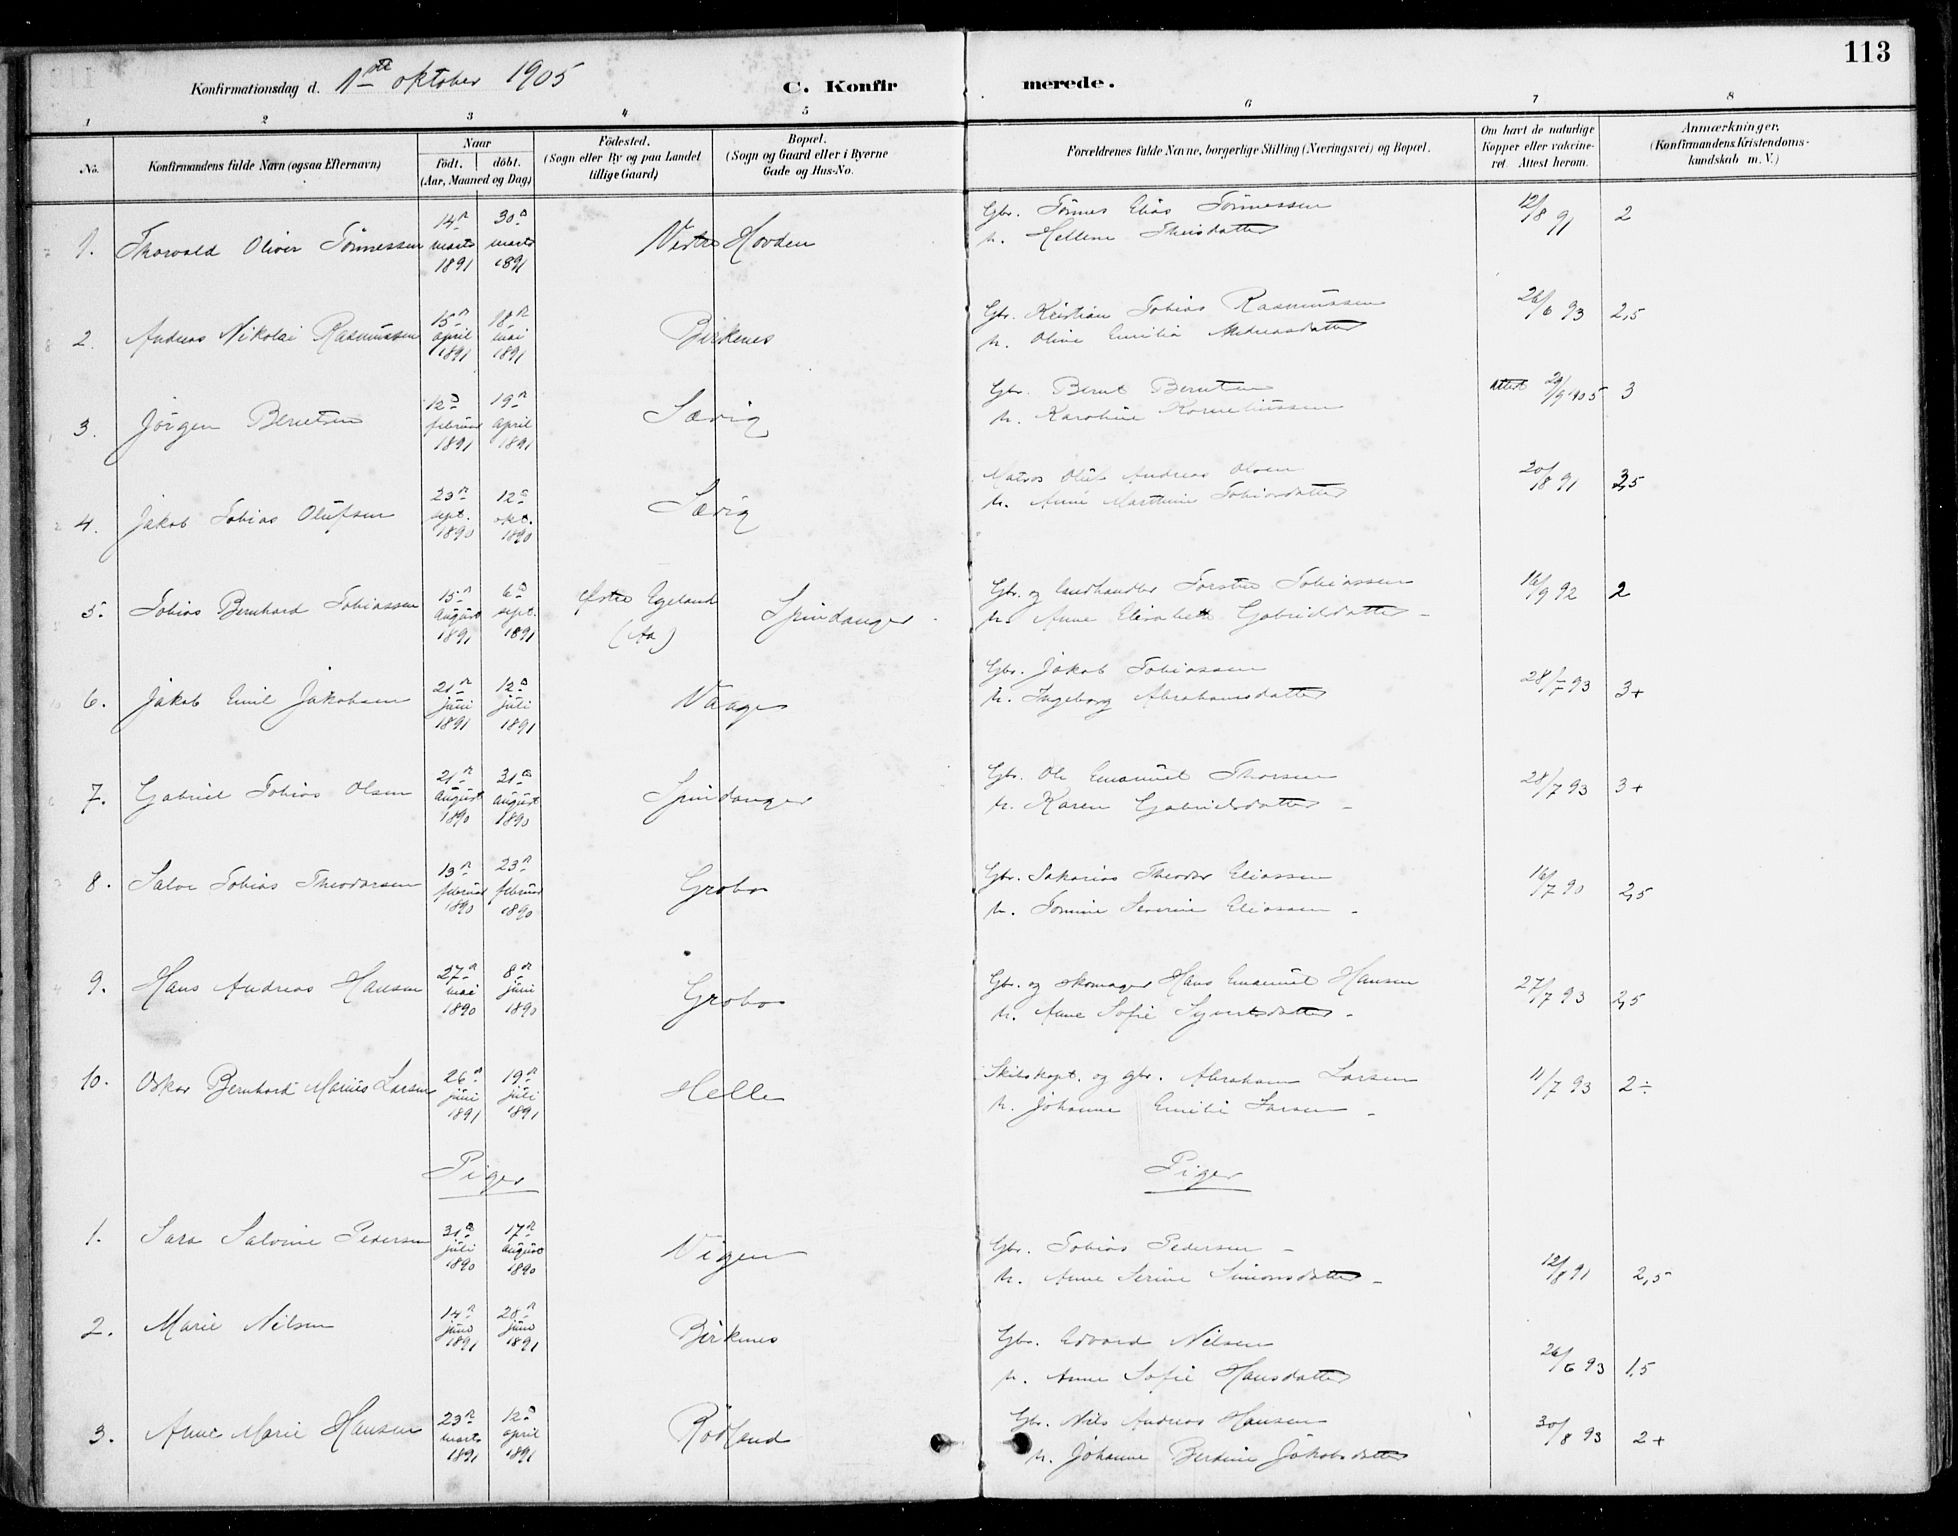 113
Konfirmationsdag d. 1ste oktober 1905
C. Konfirmerede.
1 2 3 4 5 6 7 8
No.
Konfirmandens fulde Navn (ogsaa Efternavn)
Naar
født. døbt.
(Aar, Maaned og Dag)
Fødested.
(Sogn eller By og paa Landet
tillige Gaard)
Bopæl.
(Sogn og Gaard eller i Byerne
Gade og Hus-No.
Forældrenes fulde Navne, borgerlige Stilling (Næringsvei) og Bopæl.
Om havt de naturlige
Kopper eller vakcine-
ret. Attest herom.
Anmærkninger.
(Konfirmandens Kristendoms-
kundskab m. V.)
1. Thorvald Oliver Tönnessen 14de marts 1891 30te marts 1891 Vestre Hovden
Gbr. Tönnes Elias Tönnessen
h. Hellene Theisdatter
12/8 91 2
2. Andreas Nikolai Rasmussen 15de april 1891 18de mai 1891 Birkenes
Gbr. Kristian Tobias Rasmussen
h. Oline Emilia Andreasdatter
26/6 93 2,5
3. Jörgen Berntsen 12te februar 1891 19de april 1891 Sævig
Gbr. Bernt Berntsen
h. Karoline Korneliussen
attest 29/9 1905 3
4. Jakob Tobias Olufsen 23de sept. 1890 12te okt. 1890 Sævig
Matros Oluf Andreas Olsen
h. Anne Marthine Tobiasdatter
20/8 91 2,5
5. Tobias Bernhard Tobiassen 15de august 1891 6te sept. 1891 Østre Egeland (Aa) Spindanger
Gbr. og landhandler Torstein Tobiassen
h. Anne Elisabeth Gabrielsdatter
16/9 92 2
6. Jakob Emil Jakobsen 21de juni 1891 12te juli 1891 Vaage
Gbr. Jakob Tobiassen
h. Ingeborg Abrahamsdatter
28/7 93 3+
7. Gabriel Tobias Olsen 21de august 1890 31te august 1890 Spindanger
Gbr. Ole Emanuel Thorsen
h. Karen Gabrielsdatter
28/7 93 3+
8. Salve Tobias Theodorsen 13de februar 1890 23de februar 1890 Grobo
Gbr. Sakarias Theodor Eliassen
h. Tomine Severine Eliassen
16/7 90 2,5
9. Hans Andreas Hansen 27de mai 1890 8de juni 1890 Grobo
Gbr. og skomager Hans Emanuel Hansen
h. Anne Sofie Syvertsdatter
27/7 93 2,5
10. Oskar Bernhard Marius Larsen 26de juni 1891 19de juli 1891 Helle
Skibskapt. og gbr. Abraham Larsen
h. Johanne Emilie Larsen
11/7 93 2÷
Piger Piger
1. Sara Salomine Pedersen 31te juli 1890 17de august 1890 Vigen
Gbr. Tobias Pedersen
h. Anne Serine Simonsdatter
12/8 91 2,5
2. Marie Nilsen 14de juni 1891 28de juni 1891 Birkenes
Gbr. Edvard Nilsen
h. Anne Sofie Hansdatter
26/6 93 1,5
3. Anne Marie Hansen 23de marts 1891 12te april 1891 Rödland
Gbr. Nils Andreas Hansen
h. Johanne Berdine Jakobsdatter
30/8 93 2+